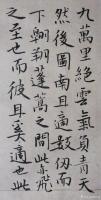 九萬里絕雲氣負青天
然後圖南且適數仞而
下翱翔蓬蒿之間此亦飛
之至也而彼且奚適也此